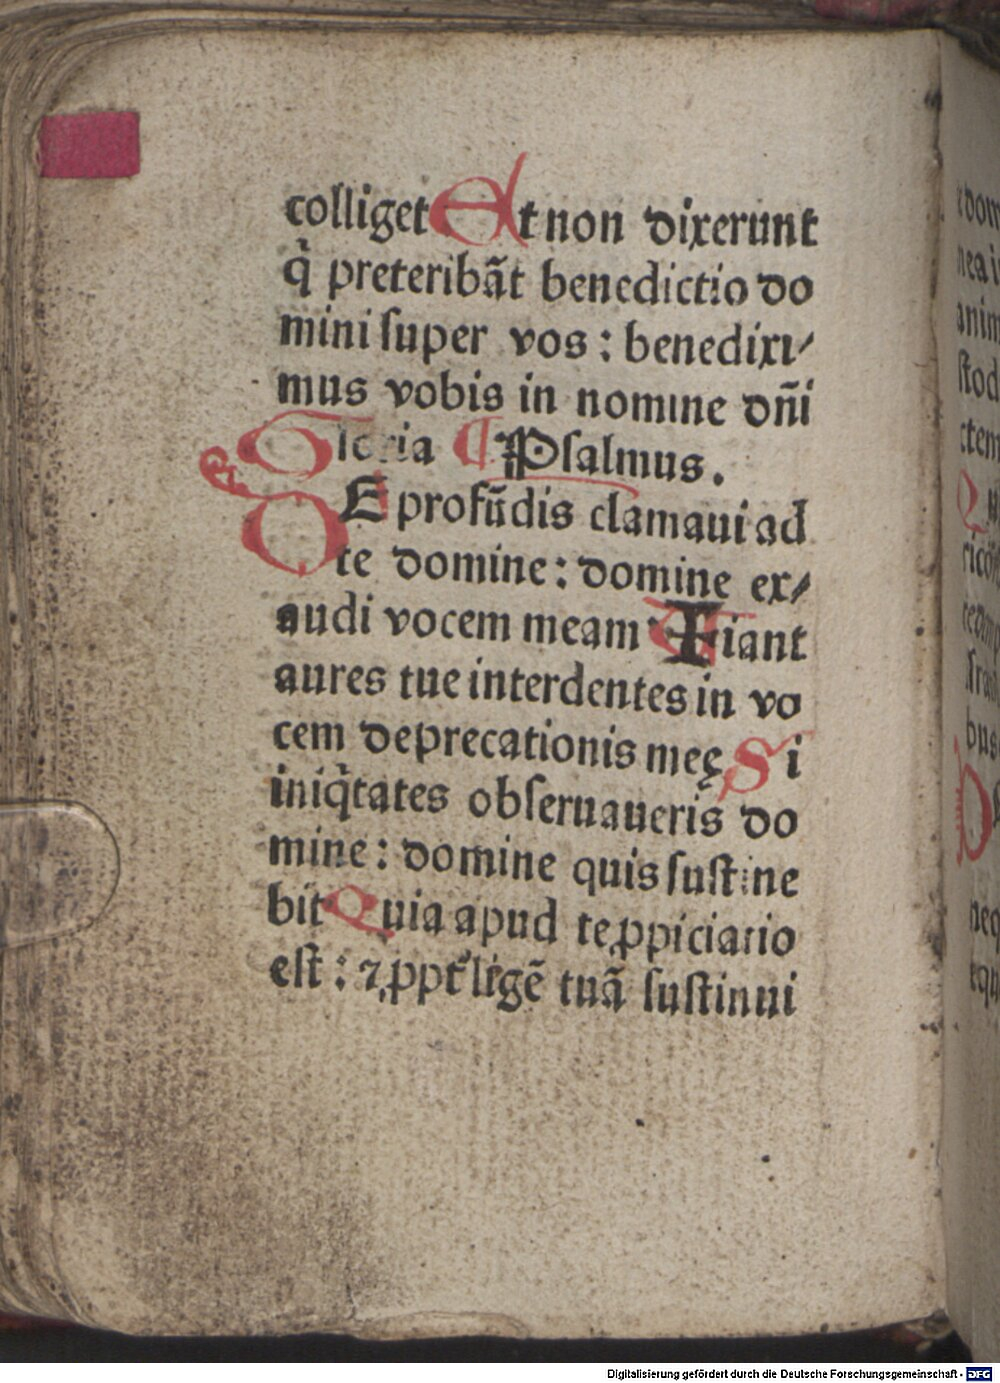 colliget Et non dixerunt
q̇ preteribãt benedictio do
mini ſuper vos : benedixi⸗
mus vobis in nomine dñi
Gloria ¶ Pſalmus .
DE profũdis clamaui ad
te domine : domine ex⸗
audi vocem meam Fiant
aures tue interdentes in vo
cem deprecationis meę Si
iniq̇tates obſeruaueris do
mine : domine quis ſuſtine
bit Quia apud te ꝓpiciatio
eſt : ⁊ ꝓpt̉ legẽ tuã ſuſtinui
Digitalisierung gefördert durch die Deutsche Forschungsgemeinschaft - DFG